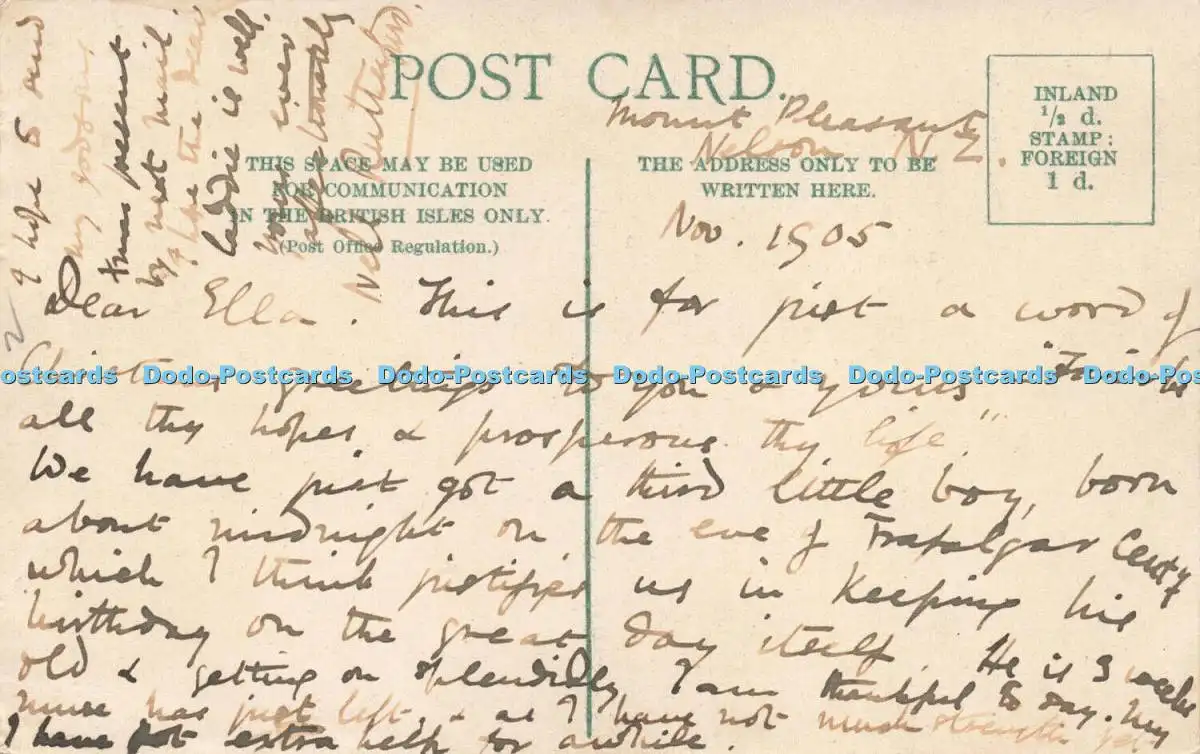 POST CARD.
THIS SPACE MAY BE USED
FOR COMMUNICATION
IN THE BRITISH ISLES ONLY.
(Post Office Regulation.)
THE ADDRESS ONLY TO BE
WRITTEN HERE.
INLAND
½ d.
STAMP:
FOREIGN
1 d.
Mount Pleasant
Nelson N Z.
Nov. 1905
Dear Ella. This is for just a word of
Christmas greetings to you & yours
all thy hopes & prosperous thy life."
We have just got a third little boy, born
about midnight on the eve of Trafalgar Centy
which I think justifies us in keeping his
birthday on the great day itself. He is 3 weeks
old & getting on splendidly I am thankful to say. My
nurse has just left, & as I have not much strength yet
I have got extra help for awhile.
I hope to send
my godson
Xmas present
by next mail
I hope the dear
laddie is well.
yours ever
affectionately
Nell
Dodo-Postcards Dodo-Postcards Dodo-Postcards Dodo-Postcards Dodo-Postcards